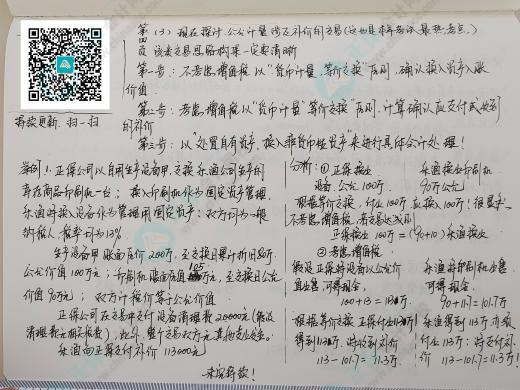 第四页
(3) 现在探讨,公允计量涉及补价的交易(这也是本年考试最热考点.)
该类交易思路框架一定要清晰
第一步:不考虑增值税以“货币计量、等价交换”原则,确认换入资产入账
价值.
第二步:考虑增值税以“货币计量”等价交换“原则,计算确认应支付或收到
的补价
第三步:以“处置自有资产,换入非货币性资产”来进行具体会计处理!
持续更新 扫一扫
举例1.正保公司以自用生产设备甲,交换乐渔公司生产的
库存商品印刷机一台;换入印刷机作为固定资产管理.
乐渔对换入设备作为管理用固定资产;双方均为一般
纳税人,税率均为13%
生产设备甲 账面原价200万,至交换日累计折旧80万
公允价值100万元;印刷机账面价值 万元,至交换日公允
价值90万元;双方计税价等于公允价值.
正保公司在交易中支付设备清理费20000元(假设
清理费无相关税费);此外,整个交易双方无其他支出发生.
乐渔向正保支付补价113000元
未完待续!
分析:①正保换出 乐渔换出印刷机
设备,公允100万. 90万公允
根据等价交换,付出100万,应换入100万!很显然
不考虑增值税,若交易达成则
正保换出100万=(90+10)乐渔换出
②考虑增值税
假设正保将设备以公允价 乐渔将印刷机出售
直出售可得现金. 可得现金.
100+13=113万 90+11.7=101.7万
根据等价交换 正保付出113万 乐渔得到113万,亦然
得到113万.则收到补价 付出113万:则支付补
113-101.7=11.3万. 价 113-101.7=11.3万!